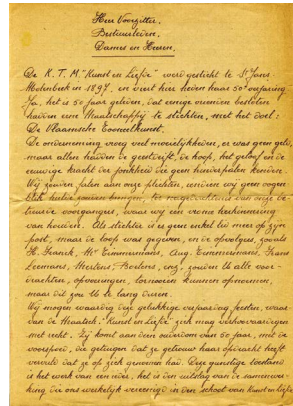 Heer Voorzitter,
Bestuursleden,
Dames en Heeren,
De K.T.M. "Kunst en Liefde" werd gesticht te St Jans
Molenbeek in 1897, en viert hier heden haar 50e verjaring
Ja, het is 50 jaar geleden, dat enige vrienden besloten
hadden een Maatschappij te stichten, met het doel:
De Vlaamsche Tooneelkunst.
De onderneming vroeg veel moeilijkheden, er was geen geld,
maar allen hadden de geestdrift, de hoop, het geloof en de
eeuwige kracht der jonkheid die geen hinderpalen kennen.
Wij zouden falen aan onze plichten, indien wij geen oogen-
blik hulde zouden brengen, ter nagedachtenis van onze be-
treurde voorgangers, waar wij een vrome herinnering
van houden. Als stichter is er geen enkel lid meer op zijn
post, maar de loop was gegeven, en de opvolgers, zooals
H. Franck, Mr Timmermans, Aug. Timmermans, Frans
Leemans, Mertens, Boelens, enz, zouden U alle voor-
drachten, opvoeringen, tornooien kunnen opnoemen,
maar dit zou U te lang duren.
Wij mogen waardig deze gelukkige verjaardag feesten, waar-
van de Maatsch. "Kunst en Liefde" zich mag verhoovaardigen
met recht. Zij komt aan den ouderdom van 50 jaar, met de
voorspoed, die getuigen dat ze getrouw haar opdracht heeft
vervuld dat ze op zich genomen had. Deze gunstige toestand
is het werk van een ieder, het is den uitslag van de samenwer-
king die ons werkelijk vereenigd in den schoot van Kunst en Liefde